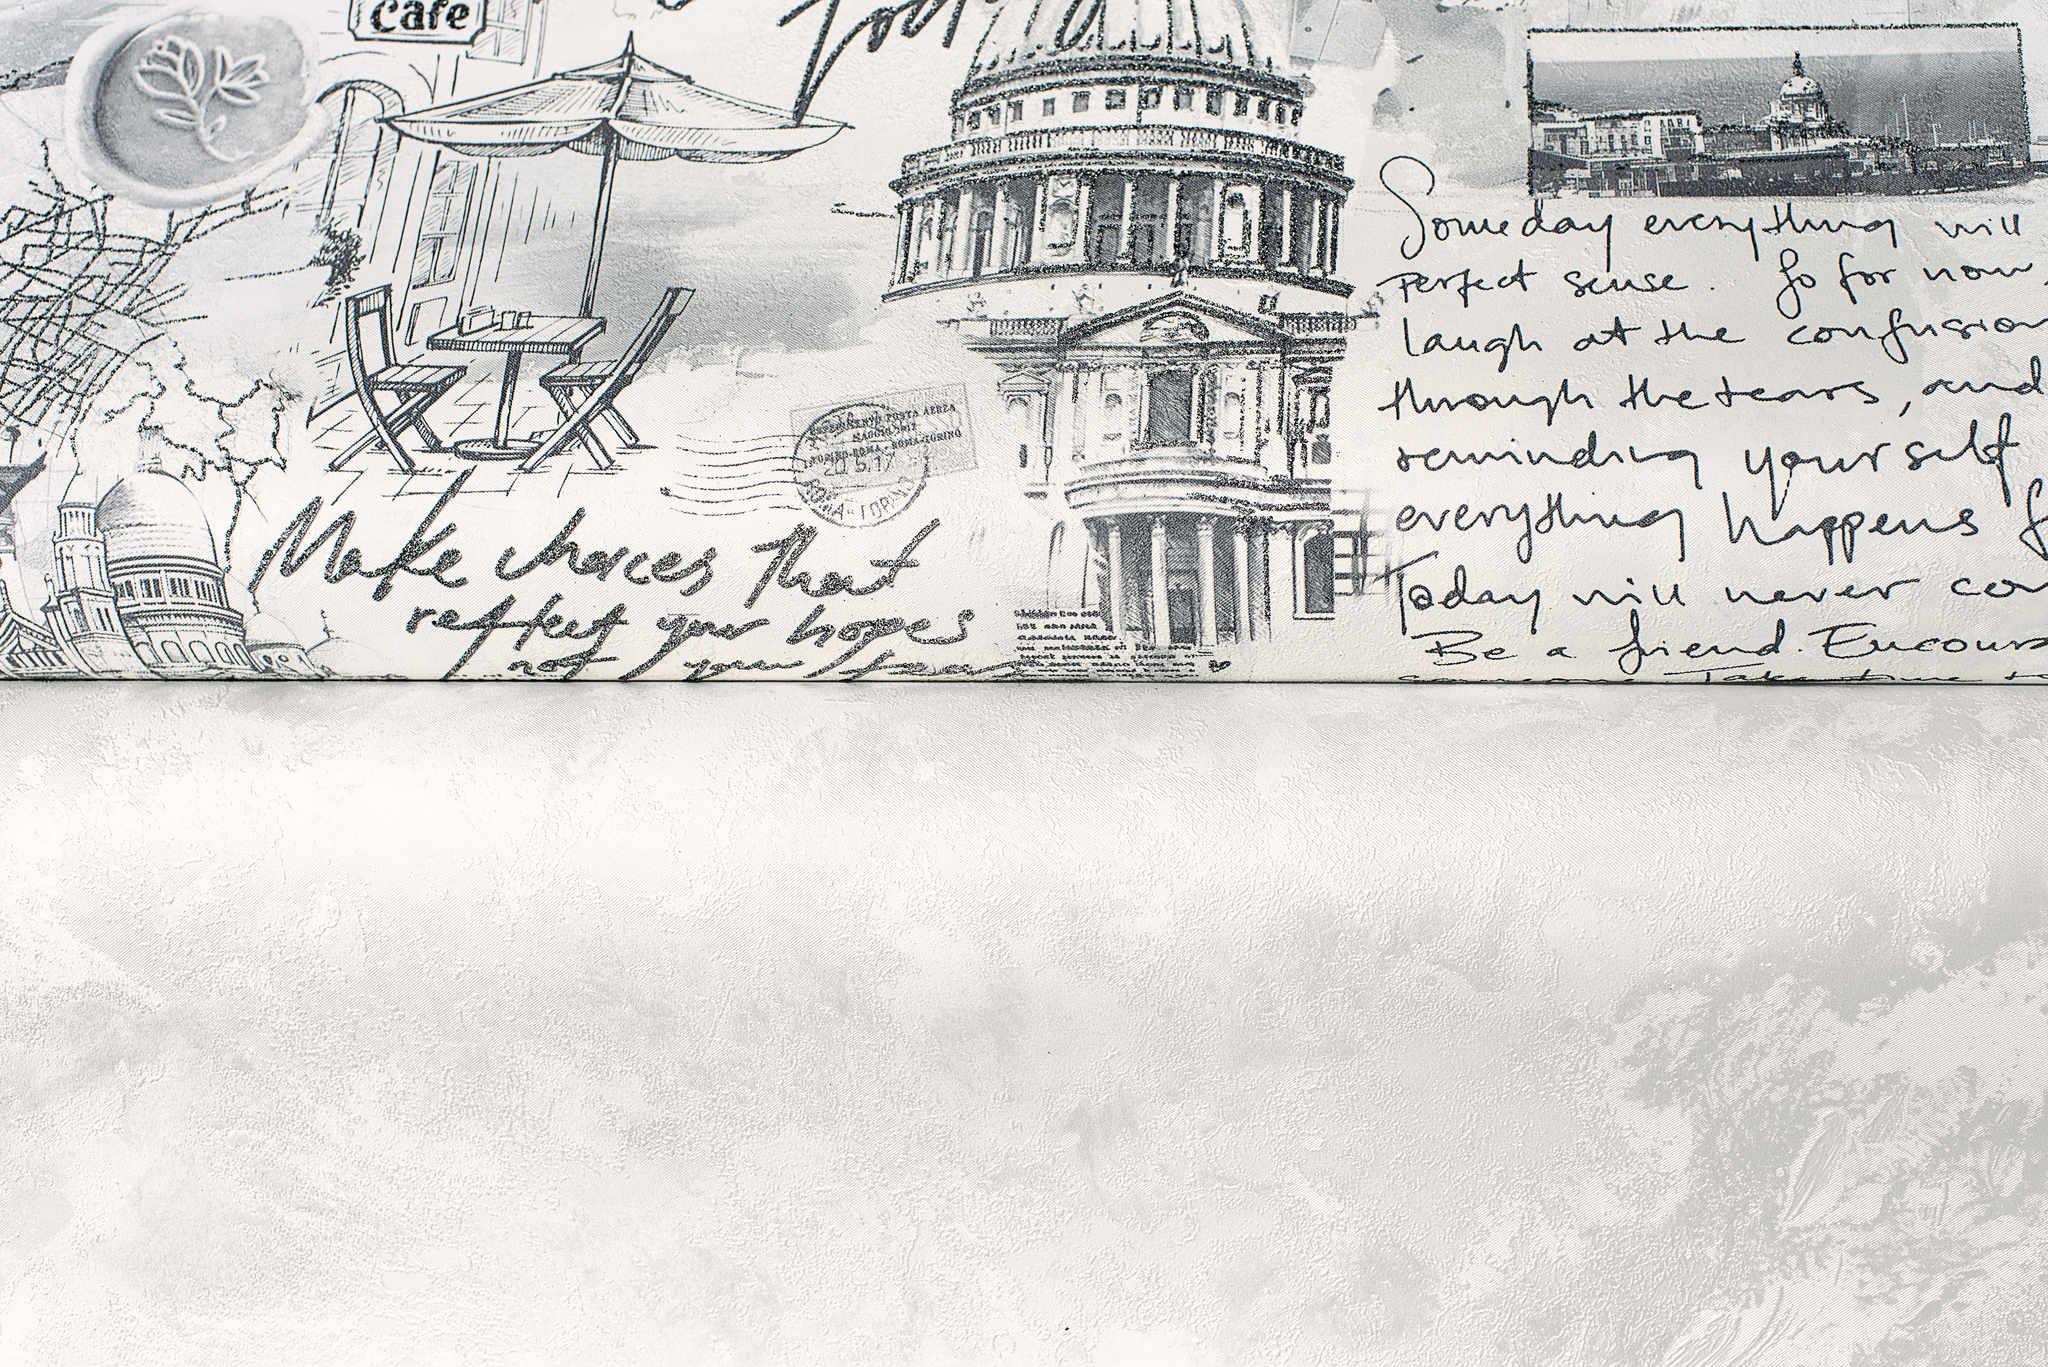 Cafe
Someday everything will
perfect sense. So for now,
laugh at the confusion
through the tears, and
reminding yourself
everything happens f
Today will never co
Be a friend. Encour
someone Take time to
POSTA AEREA
MAGGIO 1917
ROMA-TORINO
20.5.17
Make choices that
reflect your hopes
not your fears